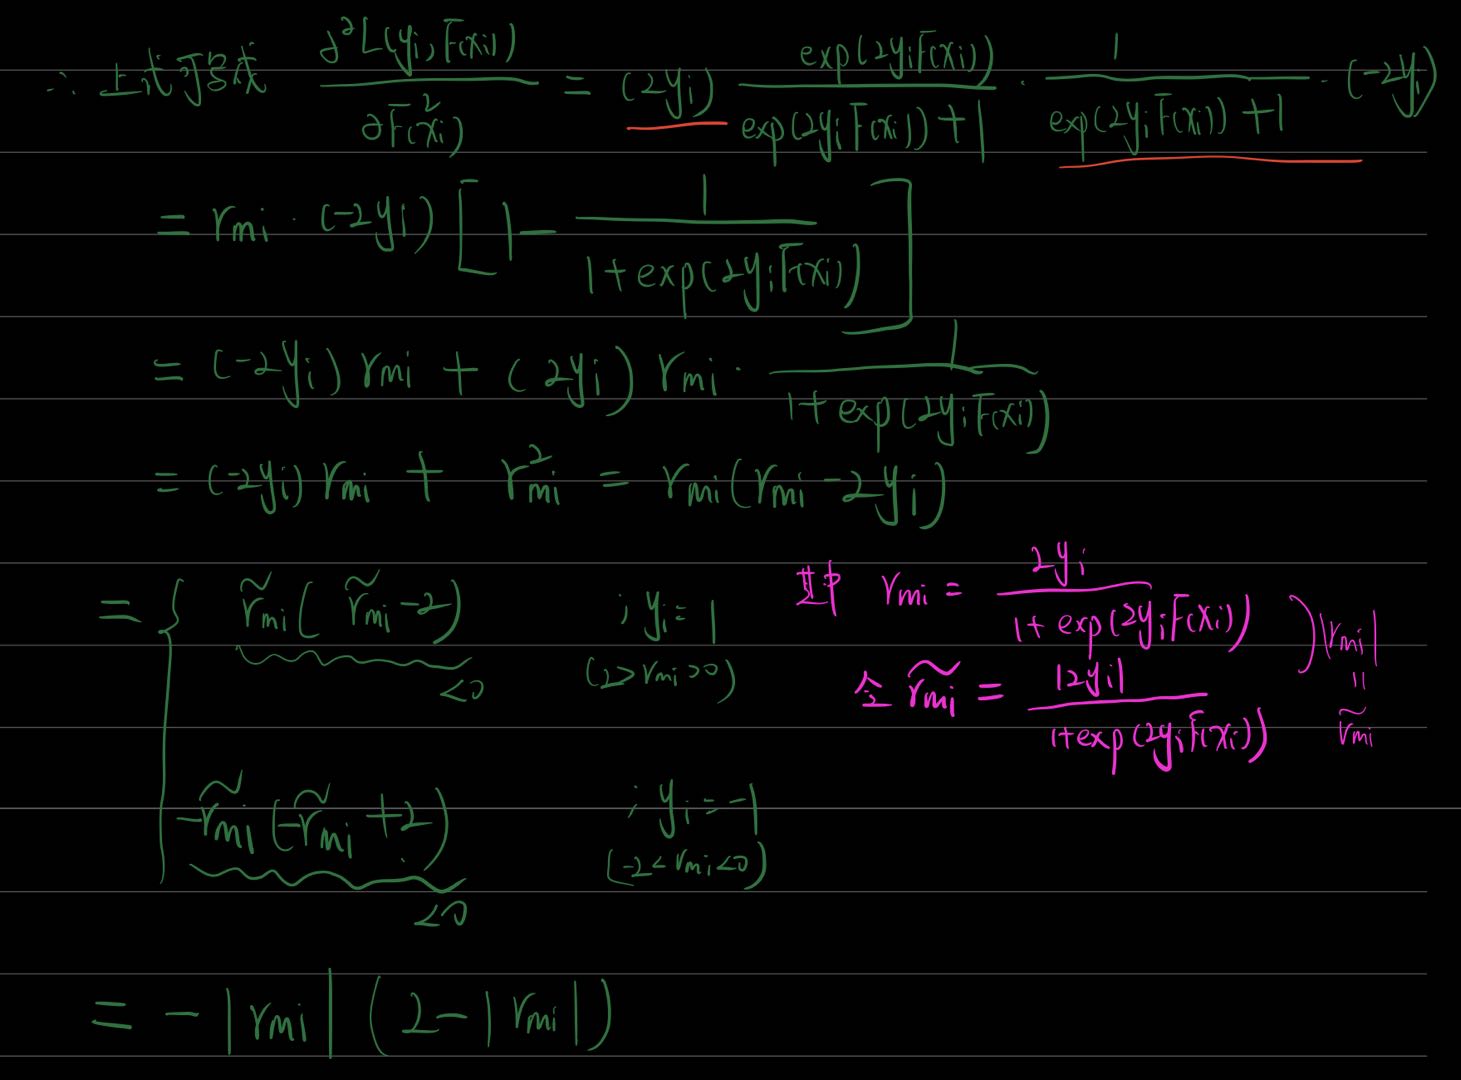 ∴ 上式可写成 ∂²L(yi, F(xi)) / ∂F(xi)² = (2yi) exp(2yiF(xi)) / (exp(2yiF(xi)) + 1) · 1 / (exp(2yiF(xi)) + 1) · (-2yi)
= rmi · (-2yi) [1 - 1 / (1 + exp(2yiF(xi)))]
= (-2yi) rmi + (2yi) rmi · 1 / (1 + exp(2yiF(xi)))
= (-2yi) rmi + r²mi = rmi (rmi - 2yi)
= { r̃mi (r̃mi - 2) ; yi = 1
<0 (2 > rmi > 0)
-r̃mi (-r̃mi + 2) ; yi = -1
<0 (-2 < rmi < 0)
其中 rmi = 2yi / (1 + exp(2yiF(xi)))
令 r̃mi = |2yi| / (1 + exp(2yiF(xi)))
) |rmi| = r̃mi
= - |rmi| (2 - |rmi|)